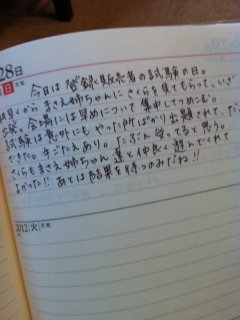 28日
日 天気
今日は登録販売者の試験の日。
朝早くからまさえ姉ちゃんにさくらを見てもらって、いざ
出発。会場には早めについて集中してつめこむ。
試験は意外にもやった所ばかり出題されて、だ
できた。手ごたえあり。たぶん受ってると思う。
さくらもまさえ姉ちゃん、蓮と仲良く遊んでくれて
よかった!! あとは結果を待つのみだね!!
2012 火 天気